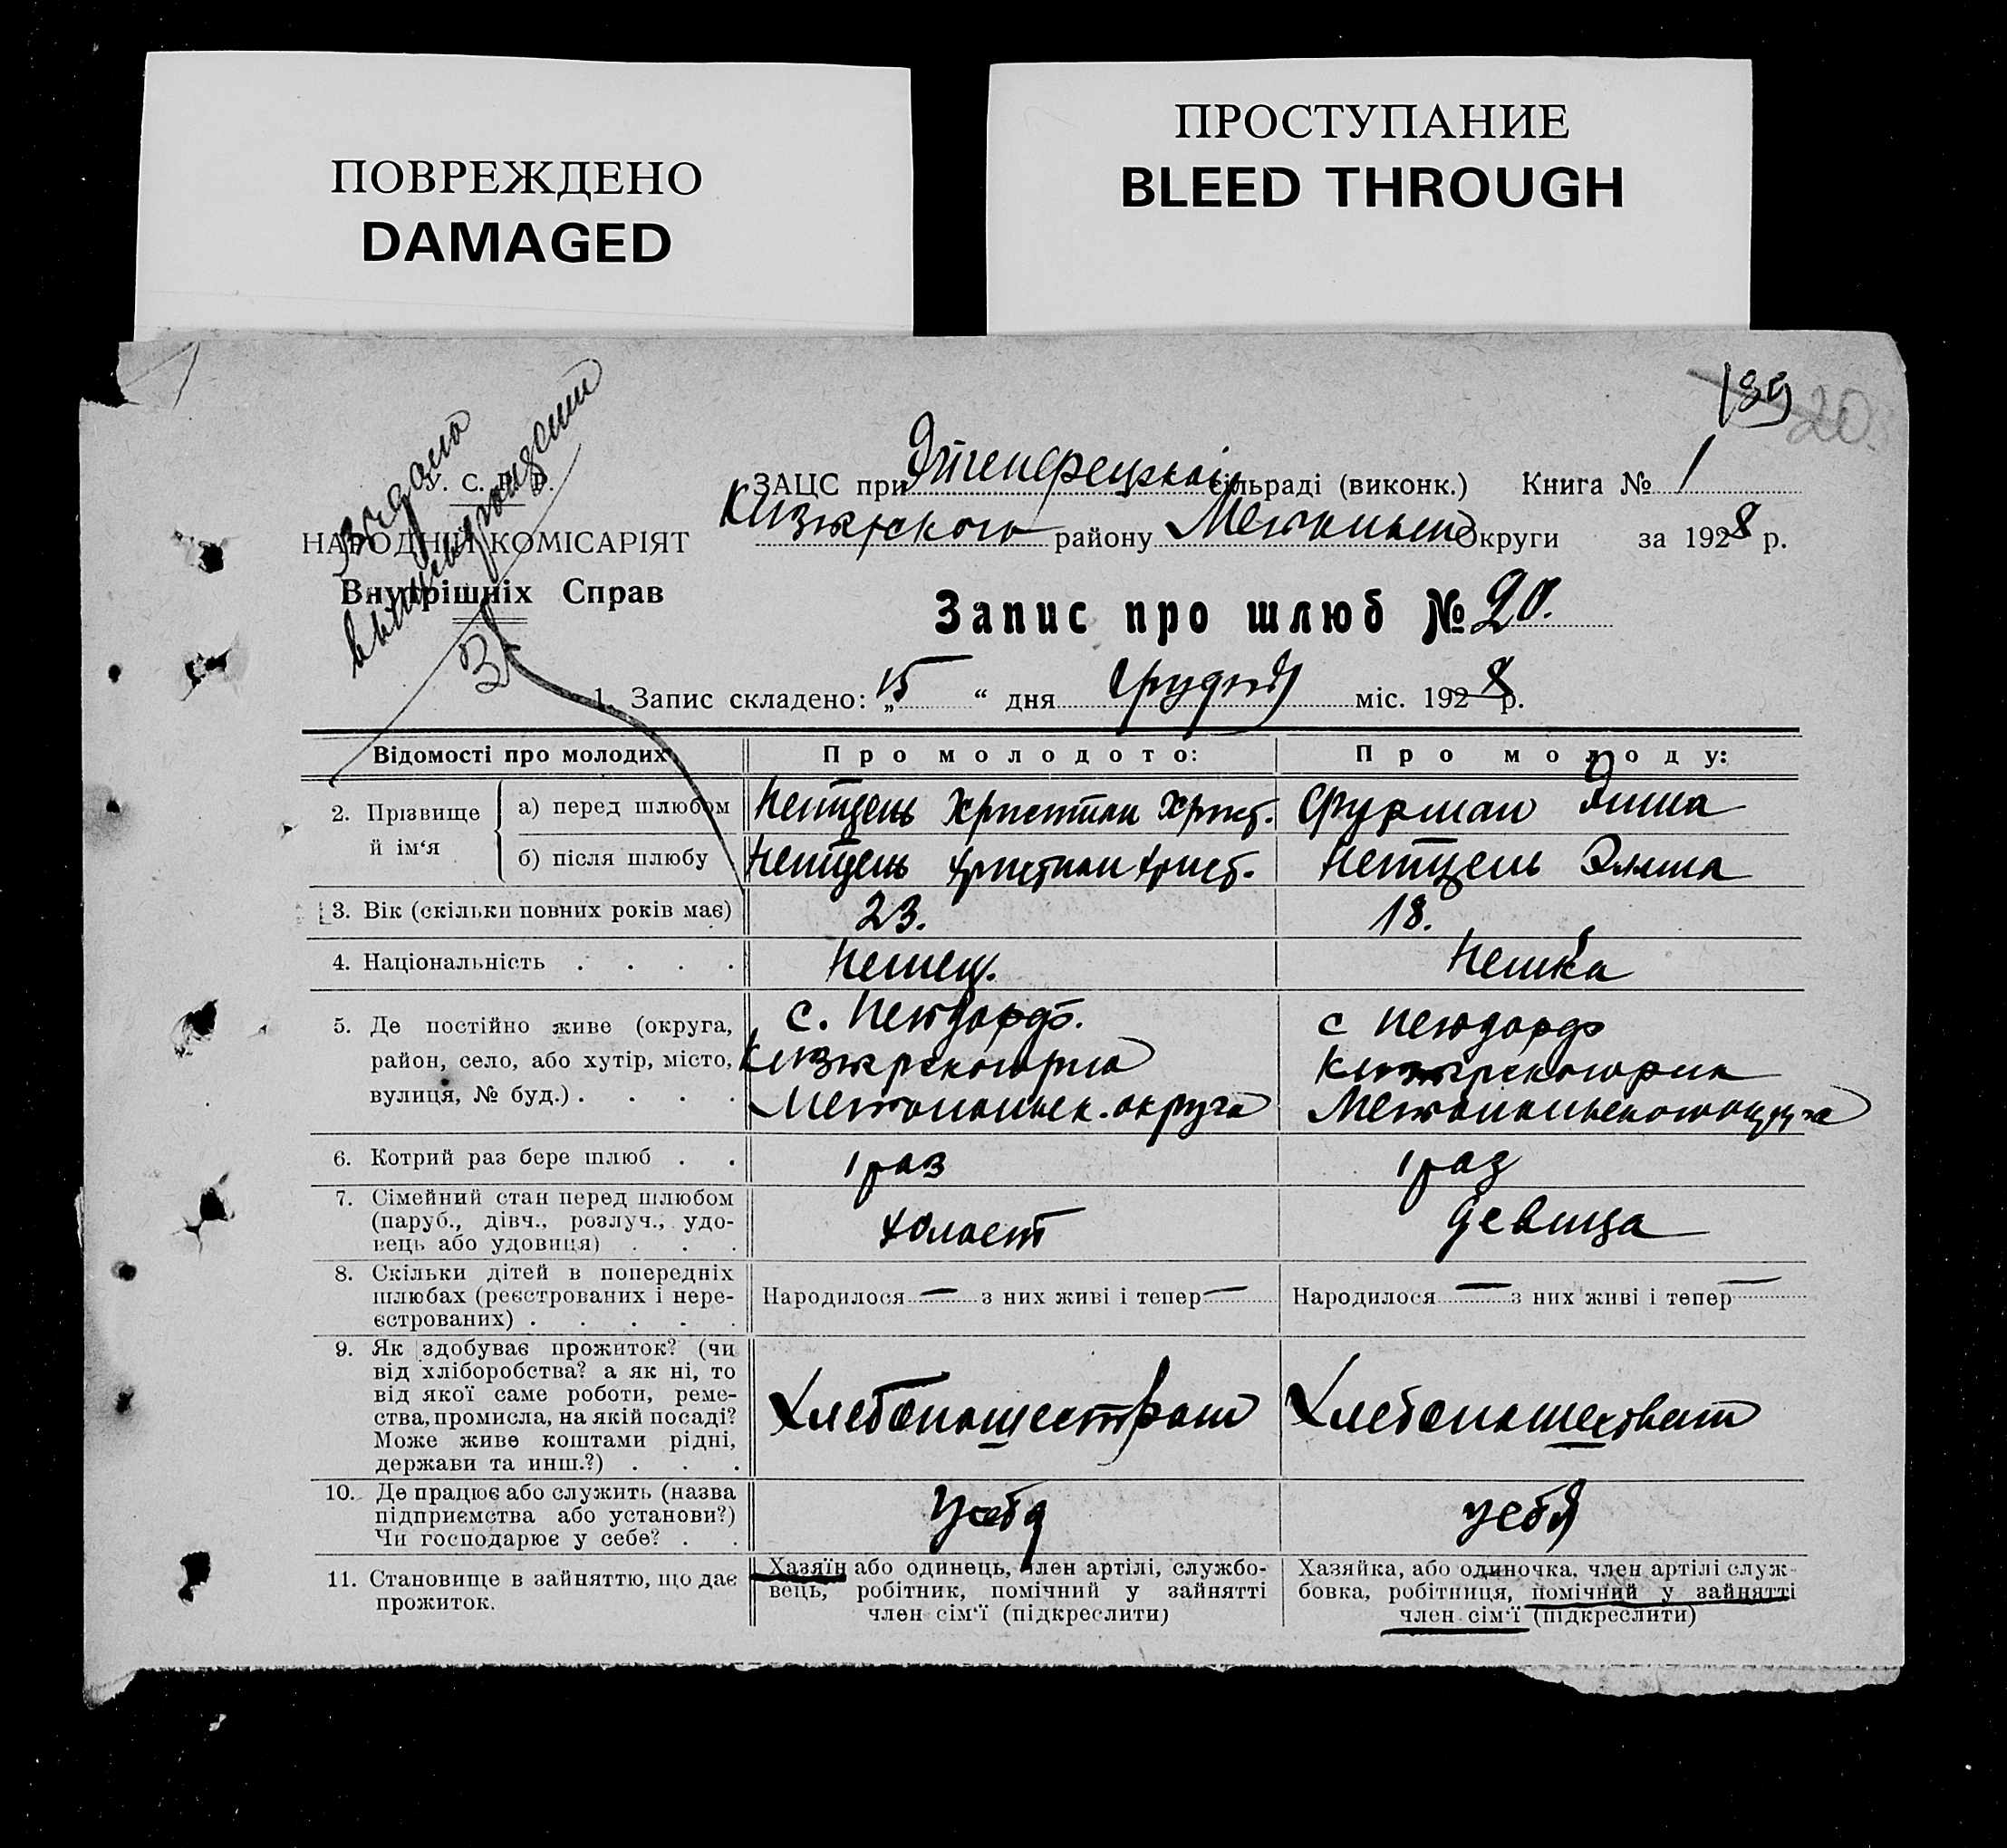 ПОВРЕЖДЕНО
DAMAGED
ПРОСТУПАНИЕ
BLEED THROUGH
189 20.
У. С. Р. Р.
НАРОДНІЙ КОМІСАРІЯТ
Внутрішніх Справ
ЗАЦС при сільраді (виконк.) Книга № 1
району Округи за 1928 р.
Запис про шлюб № 20.
1. Запис складено: „15“ дня Грудня міс. 1928 р.
Відомості про молодих Про молодото: Про молоду:
2. Прізвище й ім‘я
а) перед шлюбом Нетцель Христиан Христ. Фурман Эмма
б) після шлюбу Нетцель Христиан Христ. Нетцель Эмма
3. Вік (скільки повних років має) 23. 18.
4. Національність . . . . Немец. Немка
5. Де постійно живе (округа, с. Нейдорф. с Нейдорф
район, село, або хутір, місто,
вулиця, № буд.) . . . . округа
6. Котрий раз бере шлюб . . 1 раз 1 раз
7. Сімейний стан перед шлюбом
(паруб., дівч., розлуч., удо-
вець або удовиця) . . . холост девица
8. Скільки дітей в попередніх
шлюбах (реєстрованих і нере-
єстрованих) . . . . .
Народилося — з них живі і тепер — Народилося — з них живі і тепер —
9. Як здобуває прожиток? (чи
від хліборобства? а як ні, то
від якої саме роботи, реме-
ства, промисла, на якій посаді?
Може живе коштами рідні,
держави та инш.?) . . .
Хлебопашеством Хлебопашеством
10. Де працює або служить (назва
підприємства або установи?)
Чи господарює у себе? . . У себя у себя
11. Становище в зайняттю, що дає
прожиток.
Хазяїн або одинець, член артілі, службо-
вець, робітник, помічний у зайнятті
член сім‘ї (підкреслити)
Хазяйка, або одиночка, член артілі служ-
бовка, робітниця, помічний у зайнятті
член сім‘ї (підкреслити)